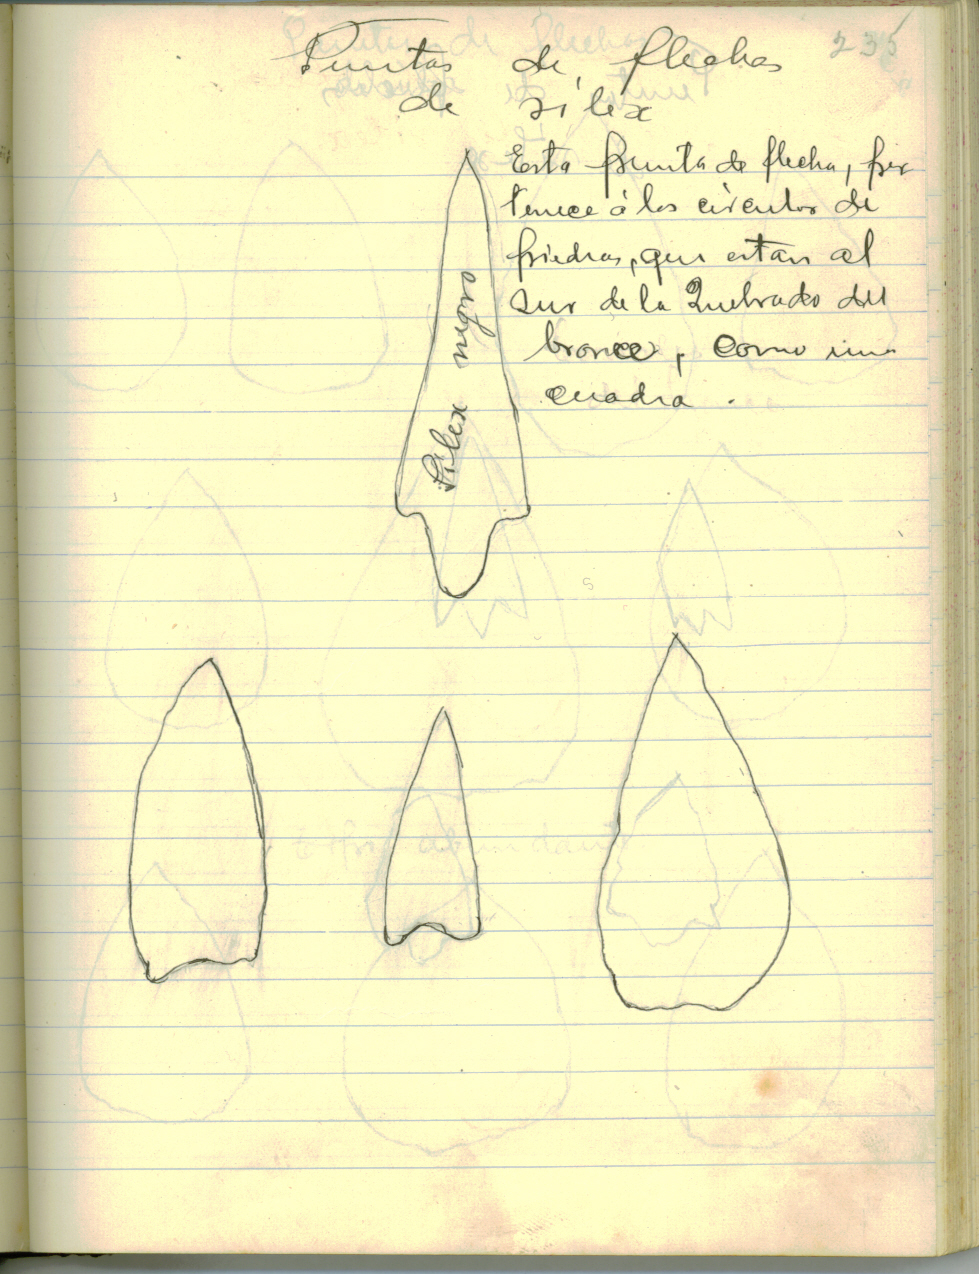 235
Puntas de flechas
de silex
Esta punta de flecha, per
tenece á los circulos de
piedras, que estan al
Sur de la Quebrada del
bronce, como una
cuadra.
Silex negro